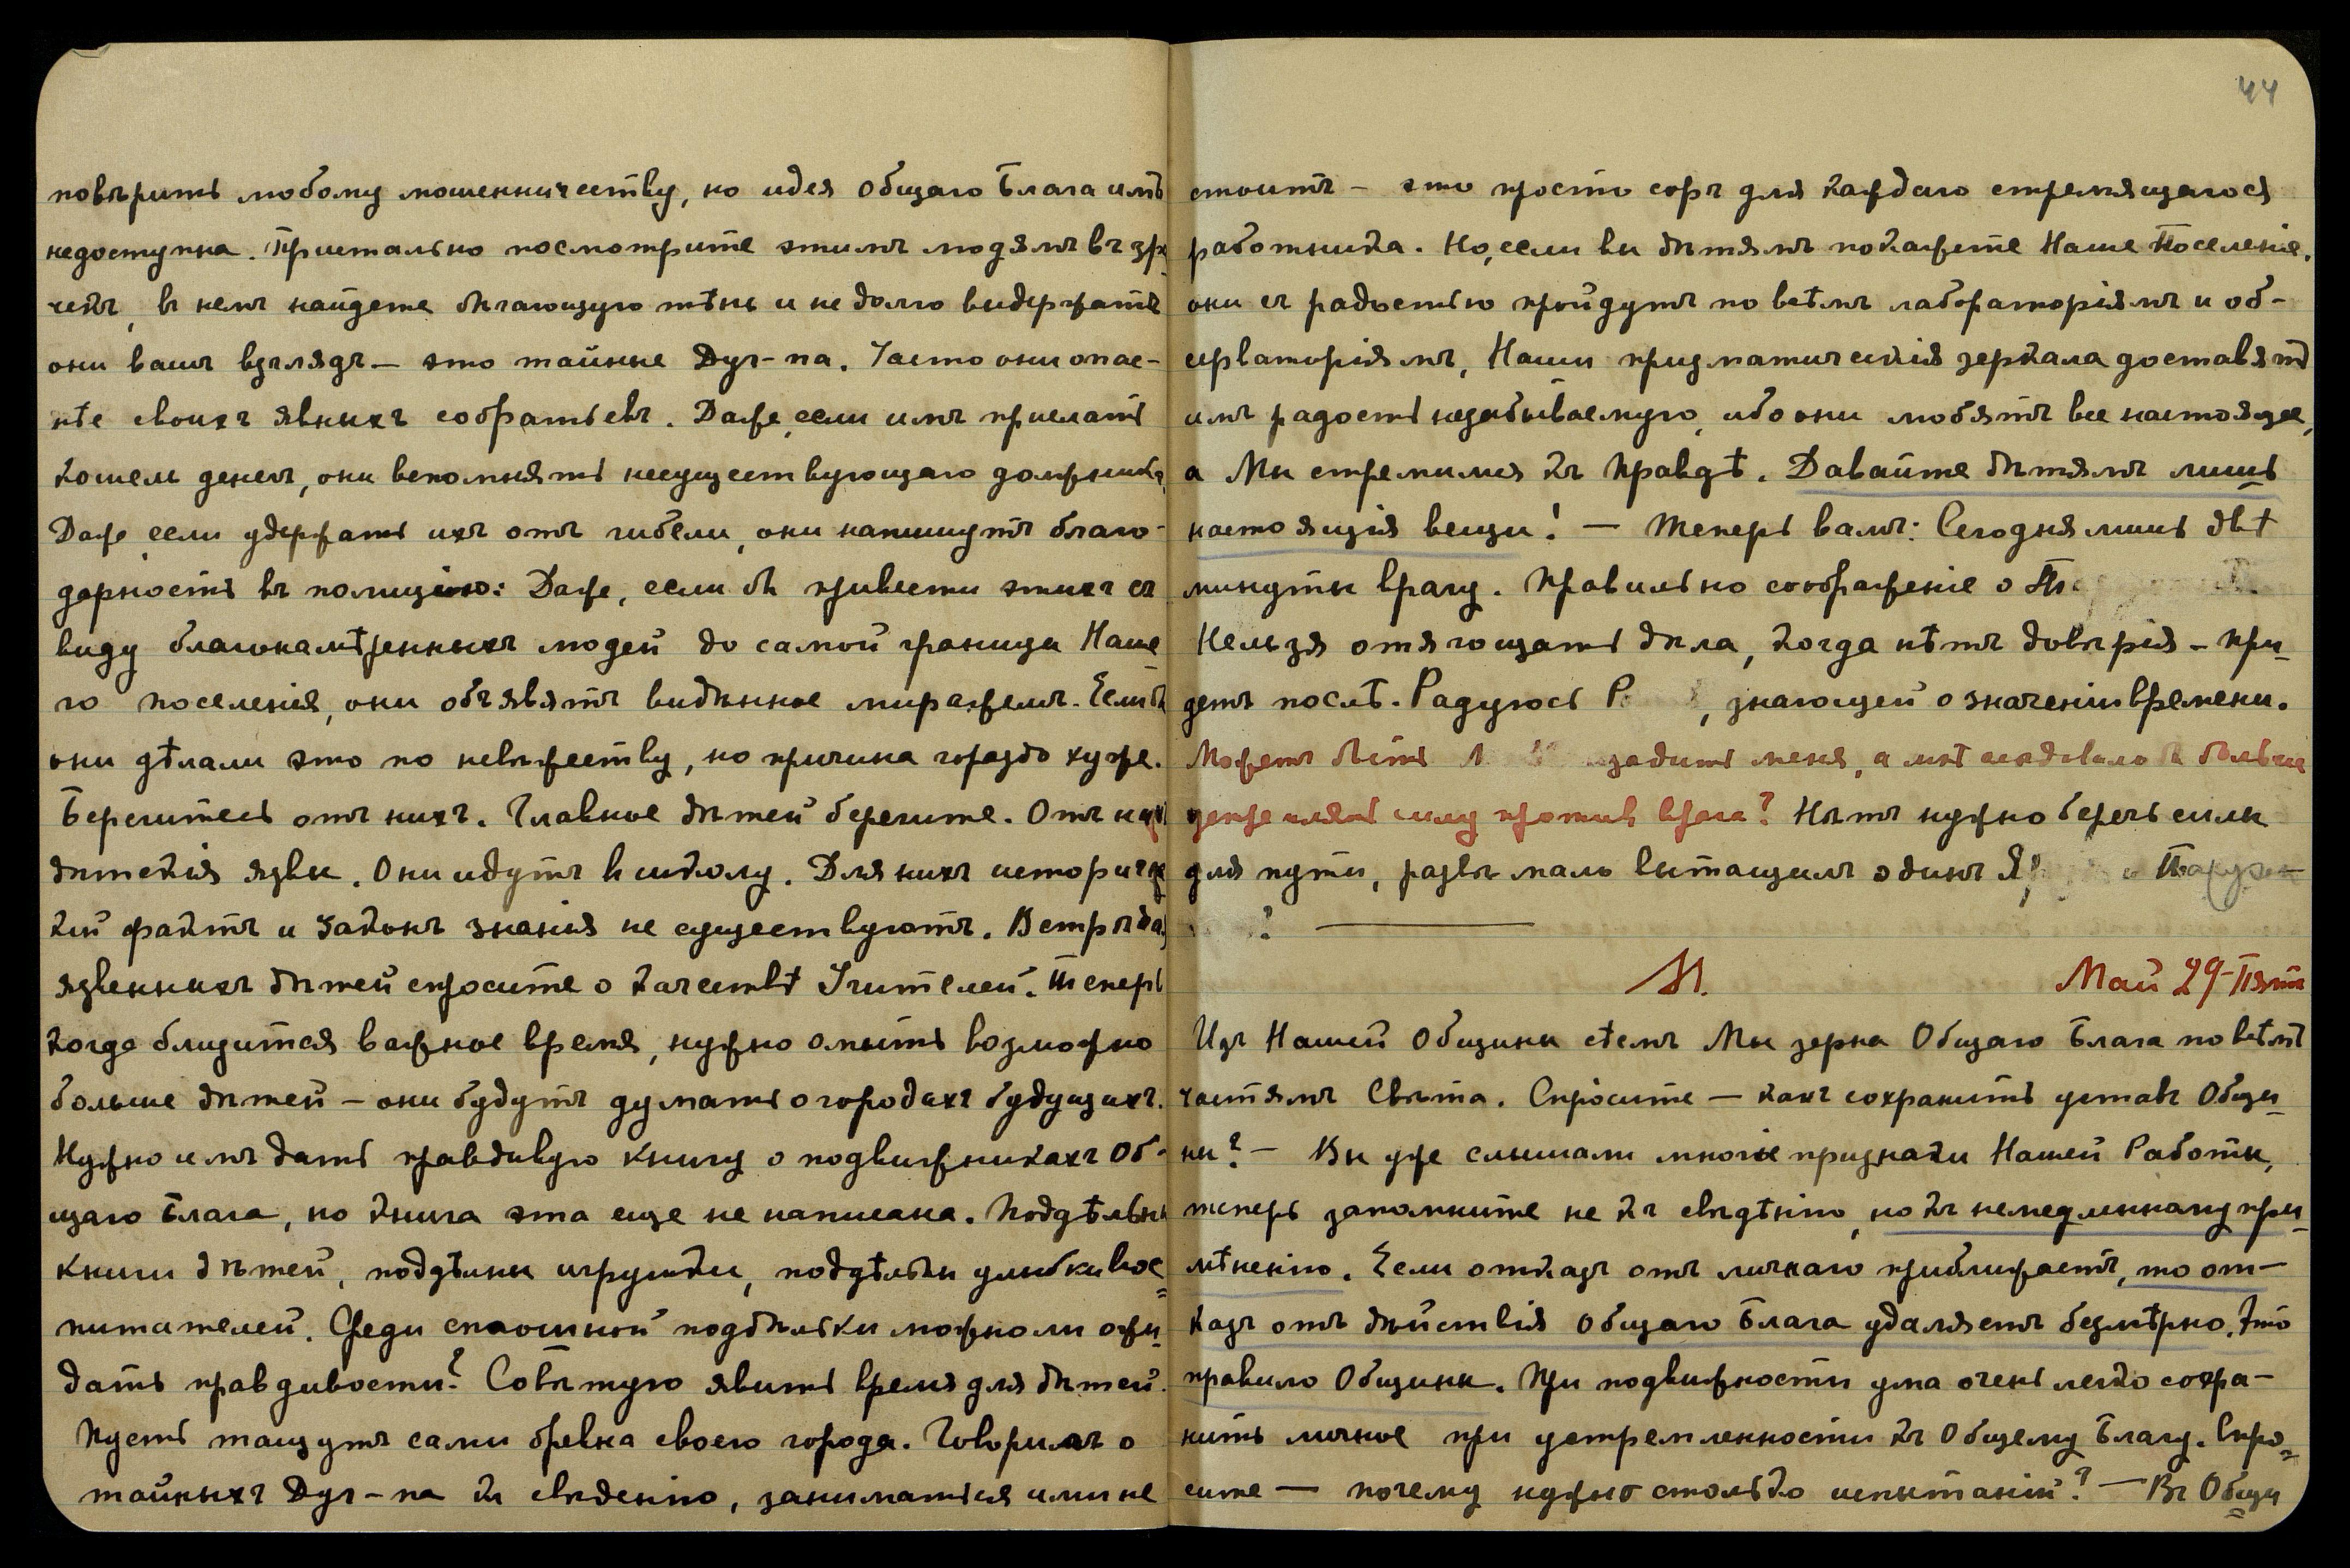 повѣрить любому мошенничеству, но идея Общаго Блага имъ
недоступна. Пристально посмотрите этимъ людямъ въ зра-
чекъ, въ немъ найдете бѣгающую тѣнь и не долго выдержатъ
они вашъ взглядъ — это тайные Дуг-па. Часто они опас-
нѣе своихъ явныхъ собратьевъ. Даже, если имъ прислать
кошель денегъ, они вспомнятъ несуществующаго должника,
Даже, если удержать ихъ отъ гибели, они напишутъ благо-
дарность въ полицію: Даже, если бы привести этихъ съ
виду благонамѣренныхъ людей до самой границы Наше-
го поселенія, они объявятъ видѣнное миражемъ. Если бъ
они дѣлали это по невѣжеству, но причина гораздо хуже.
Берегитесь отъ нихъ. Главное дѣтей берегите. Отъ нихъ
дѣтскія язвы. Они идутъ въ школу. Для нихъ историчес-
кій фактъ и законъ знанія не существуютъ. Встрѣчая
язвенныхъ дѣтей спросите о качествѣ Учителей. Теперь
когда близится важное время, нужно омыть возможно
больше дѣтей — они будутъ думать о городахъ будущихъ.
Нужно имъ дать правдивую книгу о подвижникахъ Об-
щаго Блага, но книга эта еще не написана. Поддѣльны
книги дѣтей, поддѣльны игрушки, поддѣльны улыбки вос=
питателей. Среди сплошной поддѣлки можно ли ожи-
дать правдивости? Совѣтую явить время для дѣтей.
Пусть тащутъ сами бревна своего города. Говорилъ о
тайныхъ Дуг-па къ свѣденію, заниматься ими не
44
стоитъ — это просто соръ для каждаго стремящагося
работника. Но, если вы дѣтямъ покажете Наше Поселеніе,
они съ радостью пройдутъ по всѣмъ лабораторіямъ и об-
серваторіямъ, Наши призматическія зеркала доставятъ
имъ радость незабываемую, ибо они любятъ все настоящее,
а Мы стремимся къ Правдѣ. Давайте дѣтямъ лишь
настоящія вещи! — Теперь вамъ: Сегодня лишь двѣ
минуты врагу. Правильно соображеніе о
Нельзя отягощать дѣла, когда нѣтъ довѣрія — при-
детъ послѣ. Радуюсь , знающей о значеніи времени.
Можетъ быть меня, а мнѣ слѣдовало бы больше
укреплять силу против врага? Нѣтъ нужно беречь силы
для пути, развѣ мало вытащилъ одинъ
?
М. Май 29-Пят
Изъ Нашей Общины сѣемъ Мы зерна Общаго Блага по всѣмъ
частямъ Свѣта. Спросите — какъ сохранить уставъ Общи-
ны? — Вы уже слышали многіе признаки Нашей Работы,
теперь запомните не къ свѣдѣнію, но къ немедленному при-
мѣненію. Если отказъ отъ личнаго приближаетъ, то от-
казъ отъ дѣйствія Общаго Блага удаляетъ безмѣрно. Это
правило Общины. При подвижности ума очень легко сохра-
нить личное при устремленности къ Общему Благу. Спро=
сите — почему нужно столько испытаній? — Въ Общи=